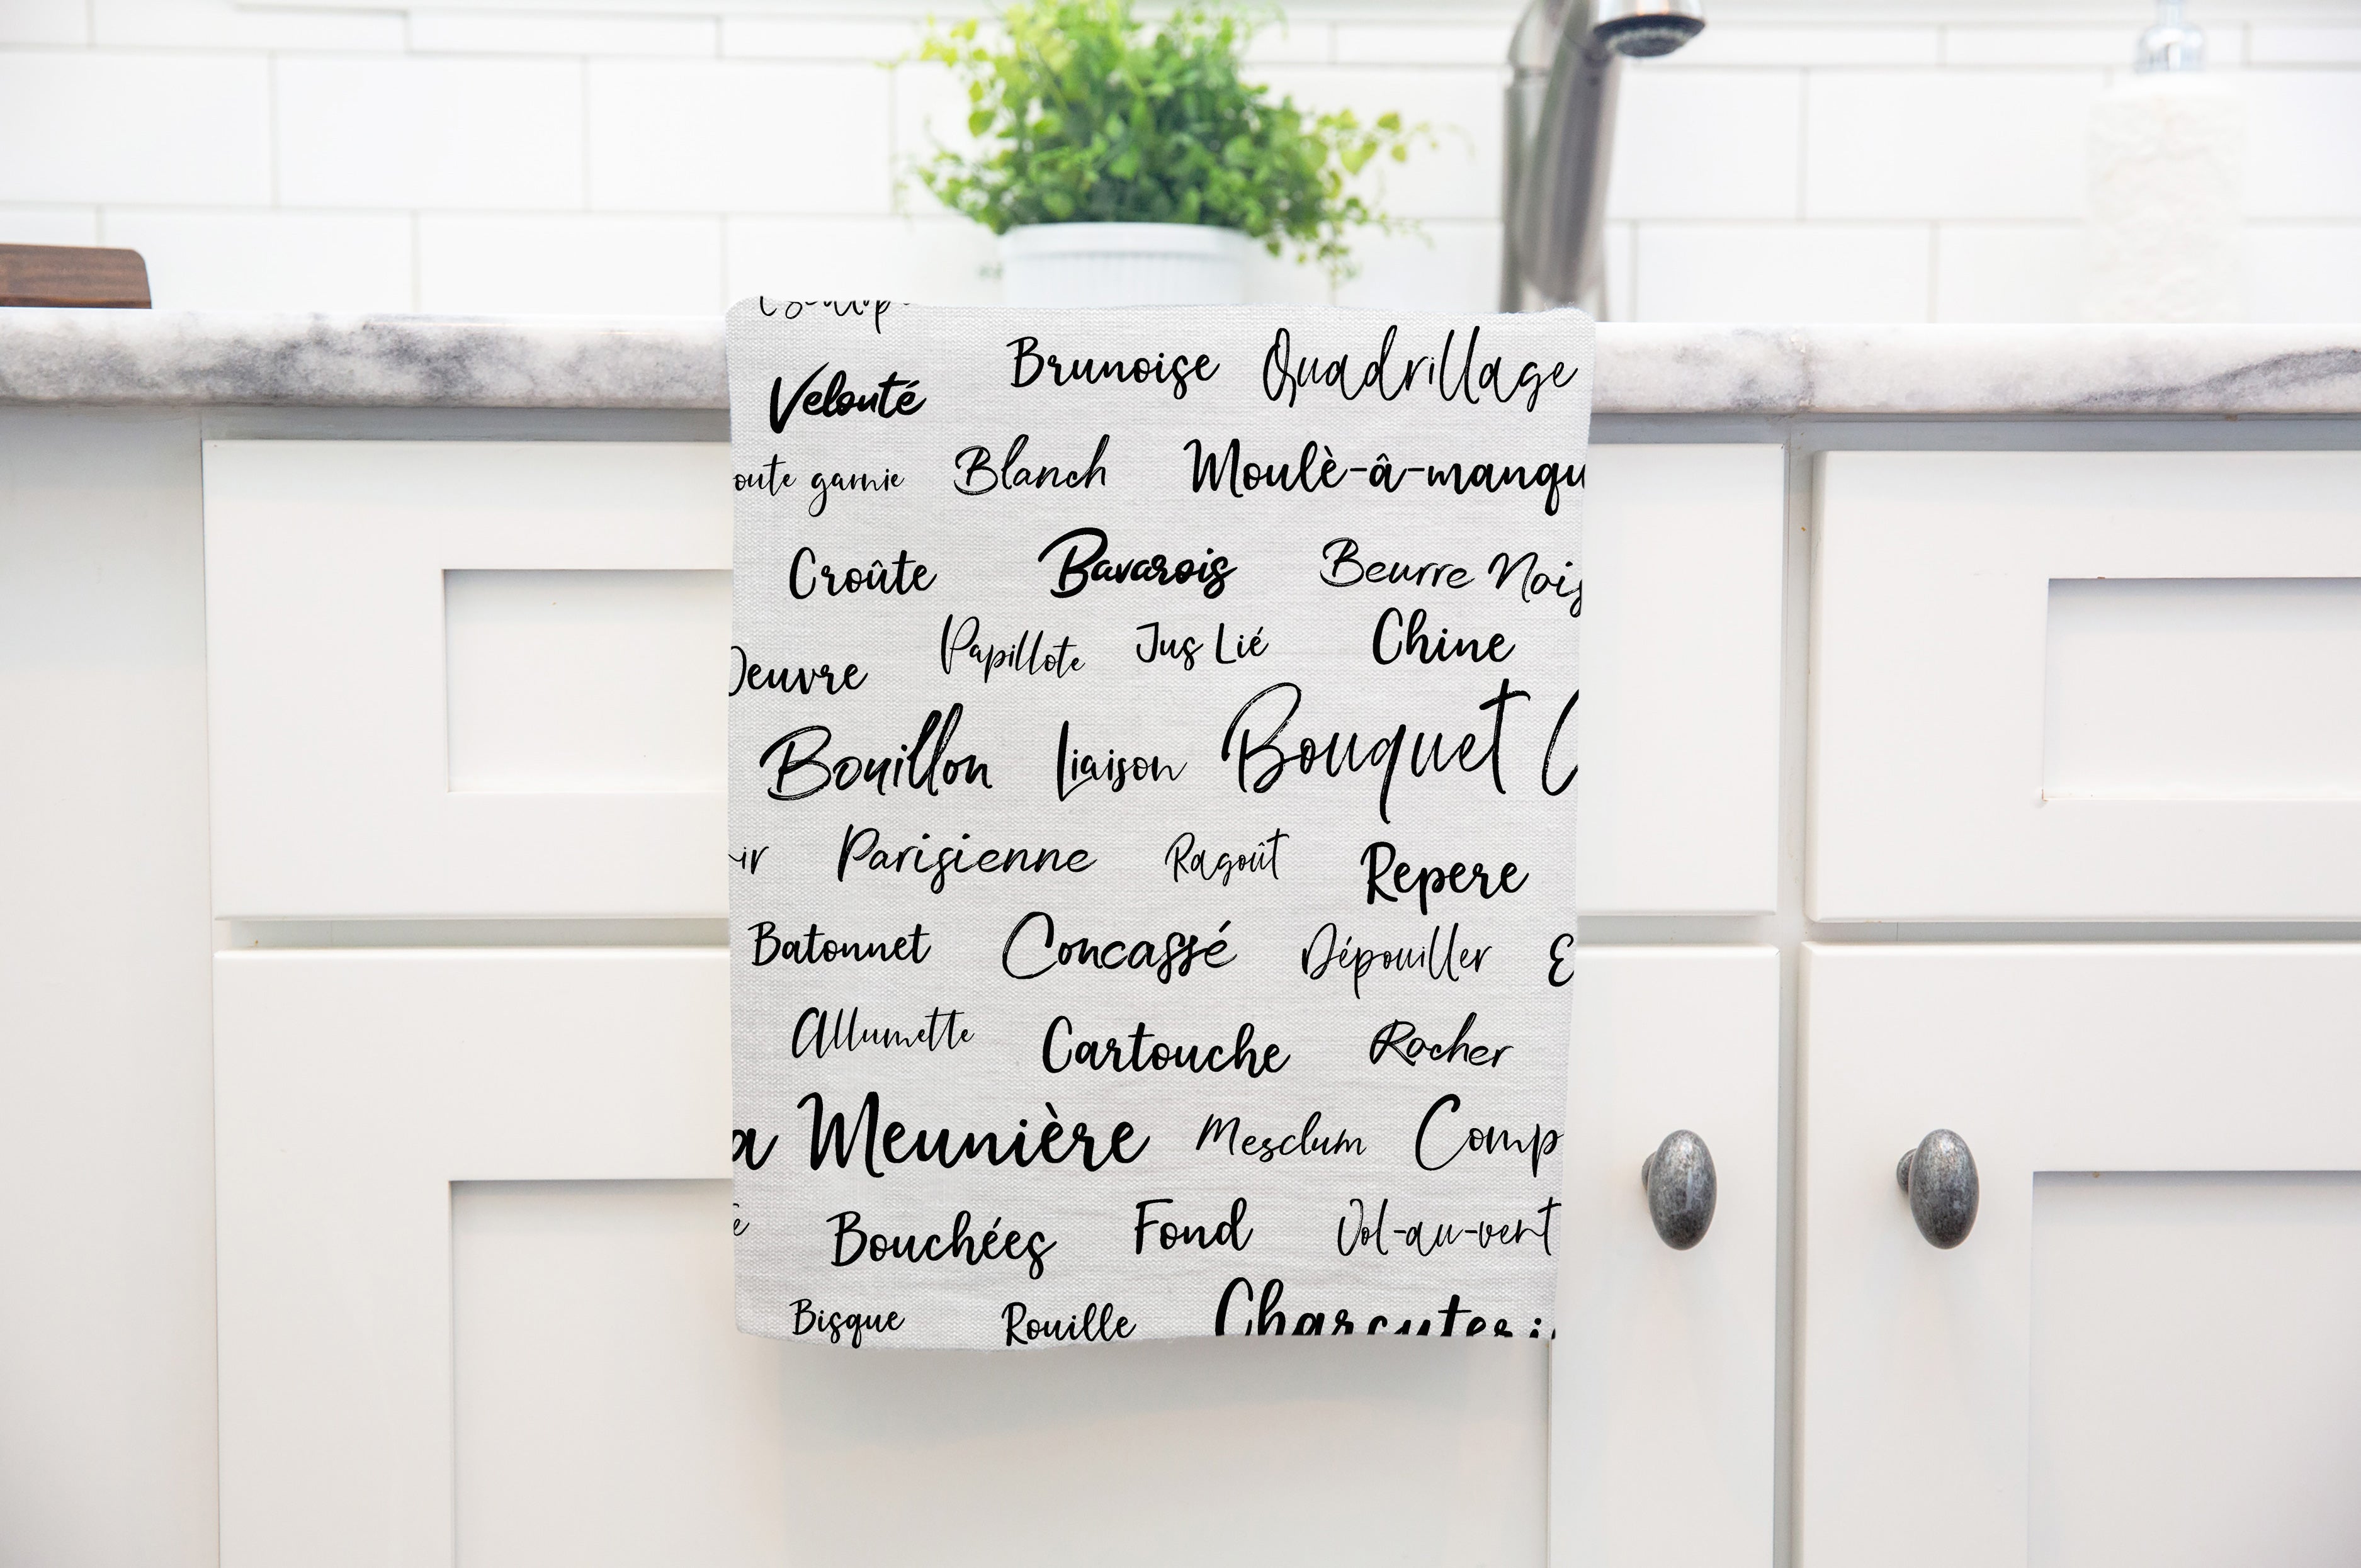 Velouté Brunoise Quadrillage
oute garnie Blanch Moulè-â-manqu
Croûte Bavarois Beurre Nois
Oeuvre Papillote Jus Lié Chine
Bouillon Liaison Bouquet
ir Parisienne Ragoût Repere
Batonnet Concassé Dépouiller E
Allumette Cartouche Rocher
a Meunière Mesclum Comp
e Bouchées Fond Vol-au-vent
Bisque Rouille Charcuteri